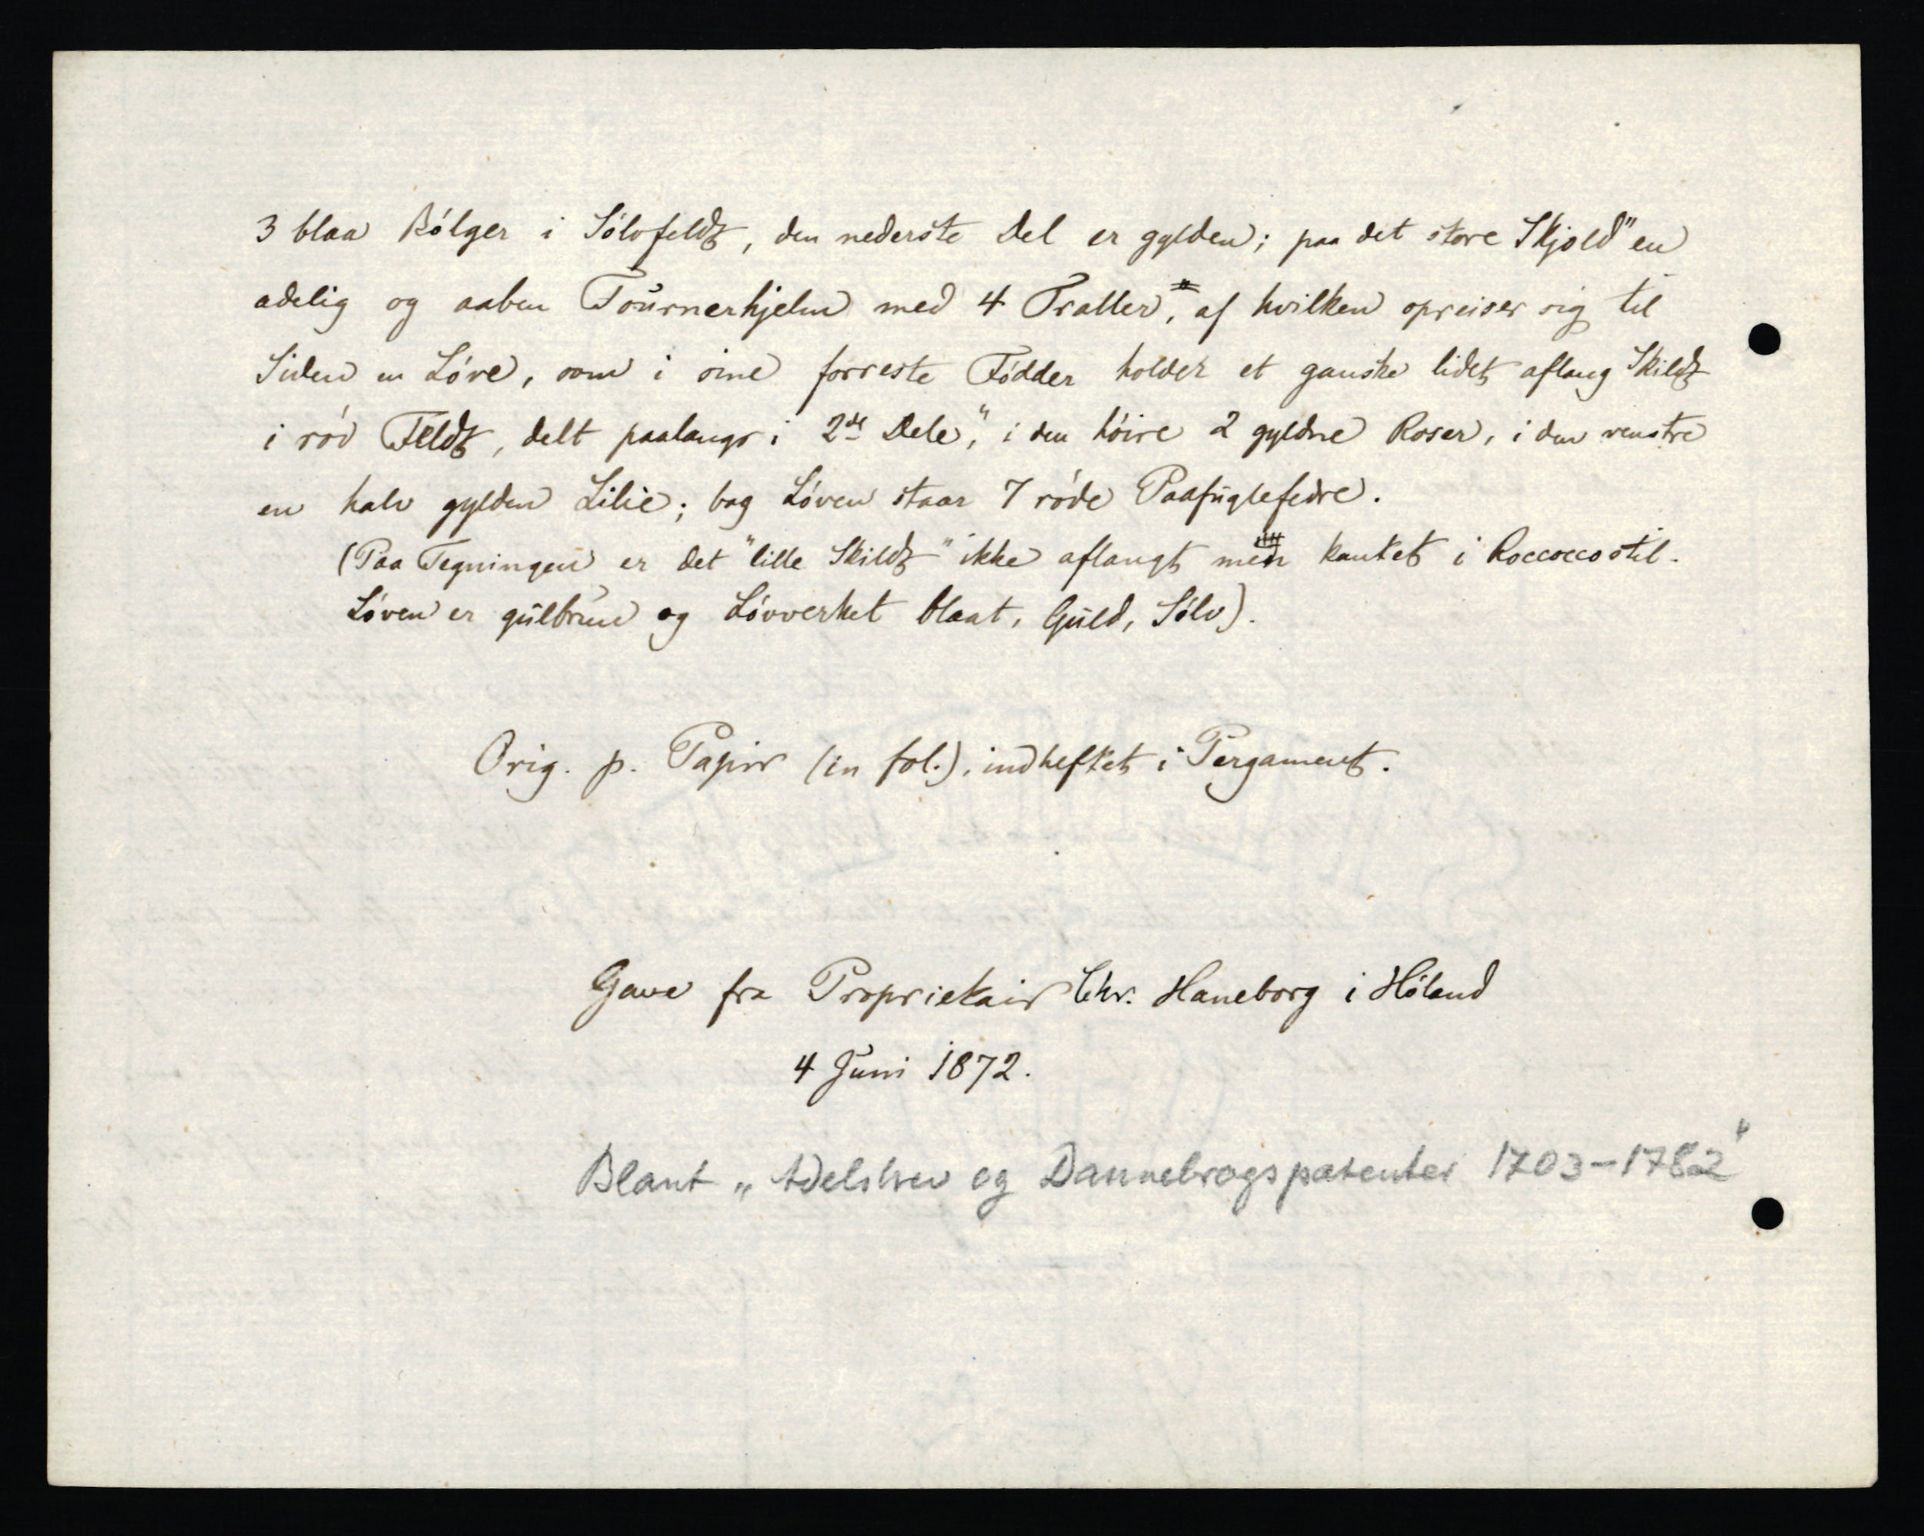 3 blaa Bólger i Sólvfeldt, den nederste Del er gylden; paa det store Skjold" en
adelig og aaben Tournerhjelm med 4 Traller", af hvilken opreiser sig til
Siden en Lóve, som i sine forreste Fódder holder et ganske lidet aflang Skildt
i ród Feldt, delt paalangs i 2de Dele," i den hóire 2 gyldne Roser, i den venstre
en halv gylden Lilie; bag Lóven staar 7 róde Paafuglefedre.
(Paa Tegningen er det "lille Skildt" ikke aflangt men kantet i Roccoccostil.
Lóven er gulbrun og Lóvverket blaat, Guld, Sólv).
Orig. p. Papir (in fol.), indheftet i Pergament.
Gave fra Proprietair Chr. Haneborg i Hóland
4 Juni 1872.
Blant „Adelsbrev og Dannebrogspatenter 1703-1782"